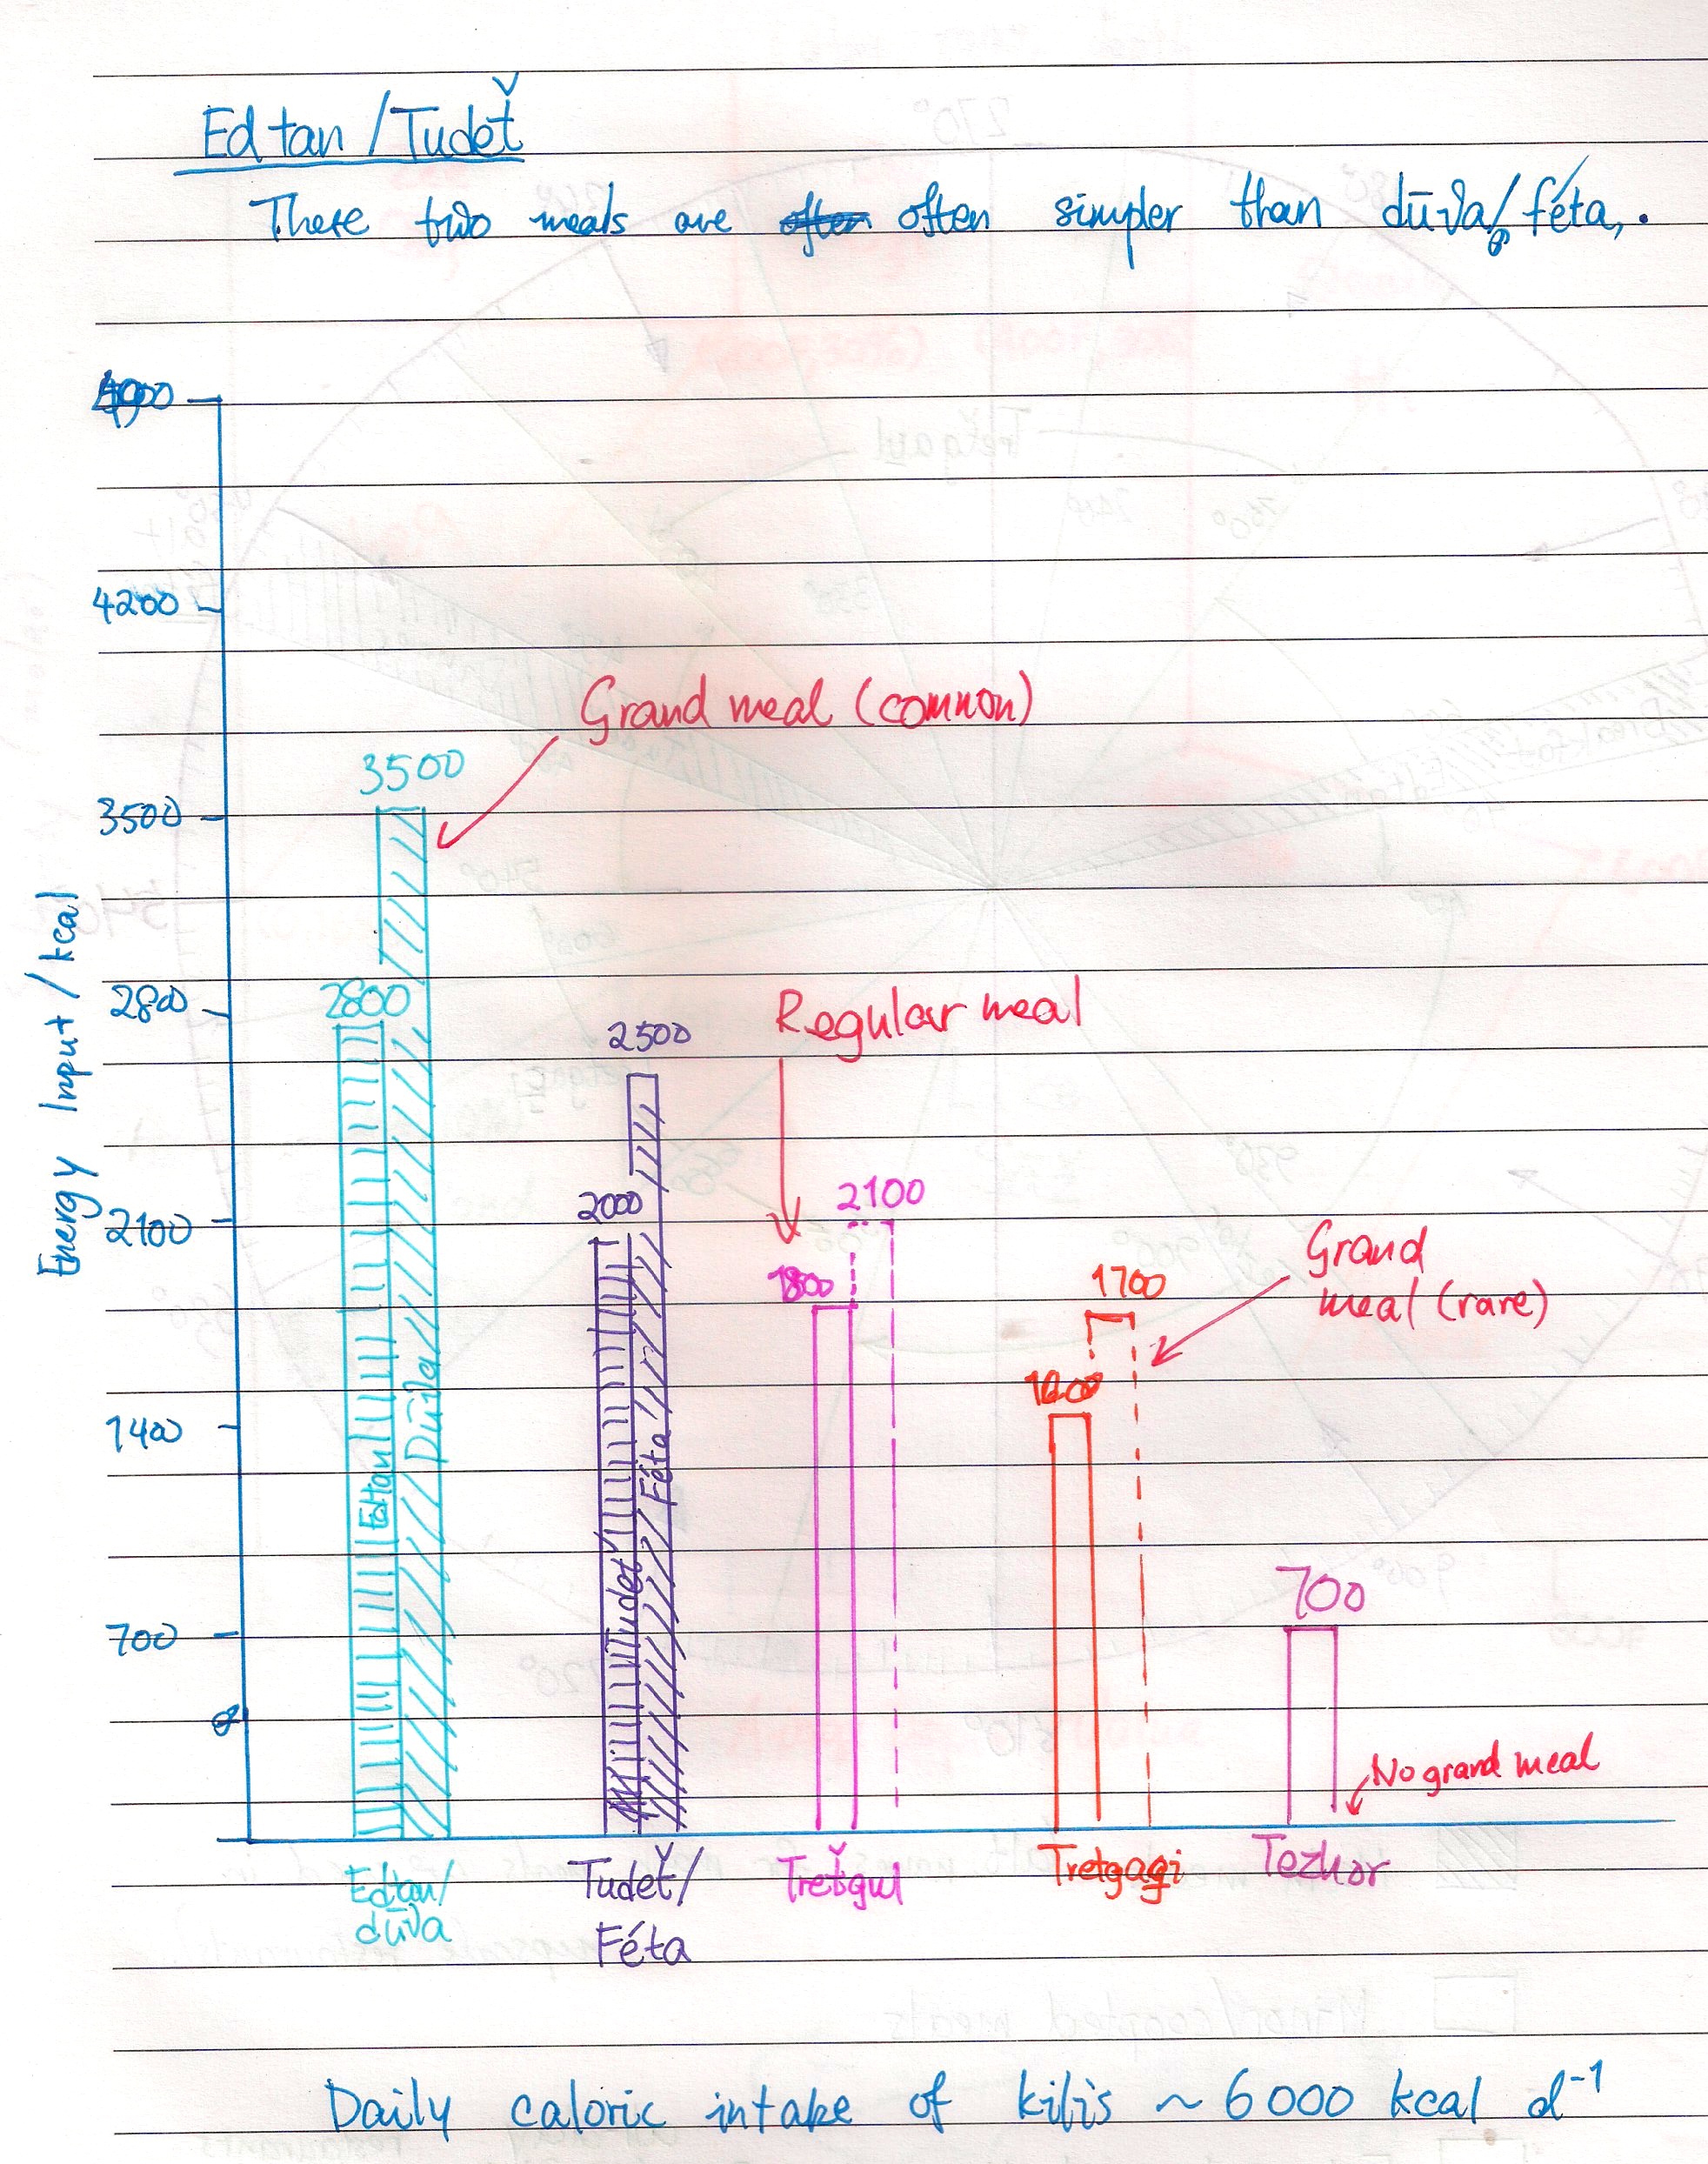 Edtan/Tudeť
These two meals are often often simpler than dūva/féta.
4200
Grand meal (common)
3500
3500
Energy Input / kcal
2800
2800
Regular meal
2500
2100
2000
2100
1800
Grand
meal (rare)
1700
1400
Edtan
Dūva
Tudeť
Féta
700
700
0
No grand meal
Edtan/
dūva
Tudeť/
Féta
Treťgul
Tretgagi
Tezhor
Daily caloric intake of kilis ~ 6000 kcal d⁻¹